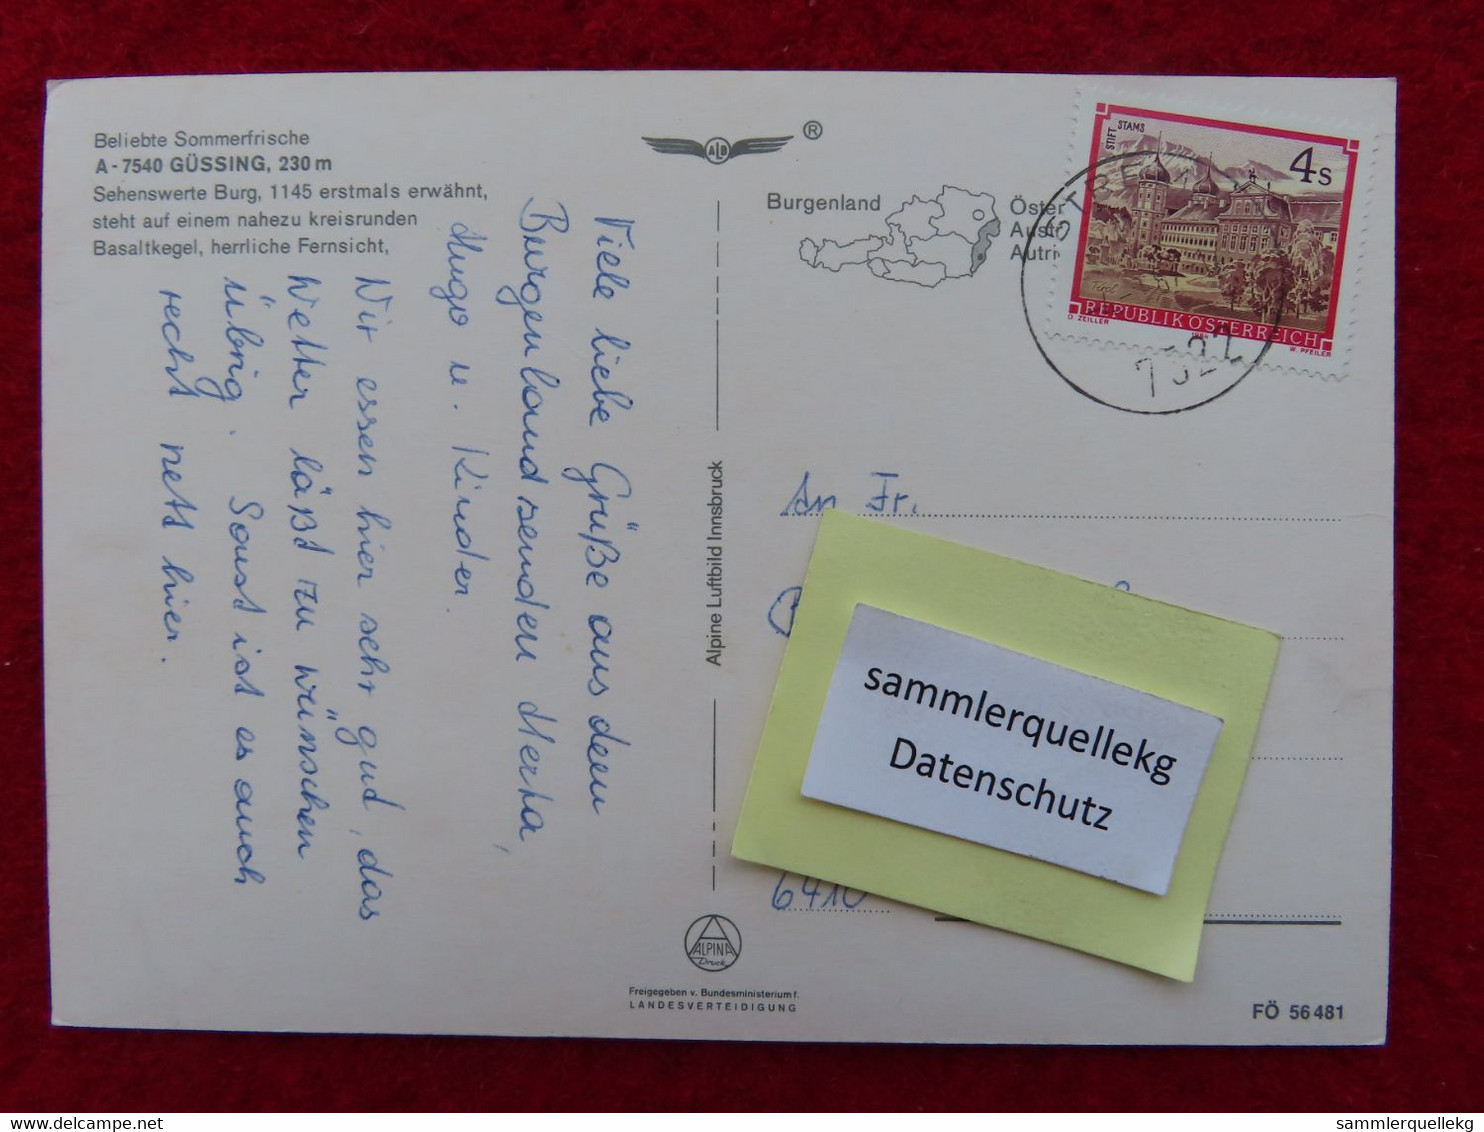 Beliebte Sommerfrische
A - 7540 GÜSSING, 230 m
Sehenswerte Burg, 1145 erstmals erwähnt,
steht auf einem nahezu kreisrunden
Basaltkegel, herrliche Fernsicht,
Viele liebe Grüße aus dem
Burgenland senden Herta,
Hugo u. Kinder.
Wir essen hier sehr gut, das
Wetter läßt zu wünschen
übrig. Sonst ist es auch
recht nett hier.
ALB ®
Burgenland
Öster
Austr
Autri
STIFT STAMS
4 S
Tirol
REPUBLIK ÖSTERREICH
D. ZEILLER
W. PFEILER
7522
Alpine Luftbild Innsbruck
An Fr.
sammlerquellekg
Datenschutz
6410
ALPINA
Druck
Freigegeben v. Bundesministerium f.
LANDESVERTEIDIGUNG
FÖ 56 481
delcampe.net
sammlerquellekg